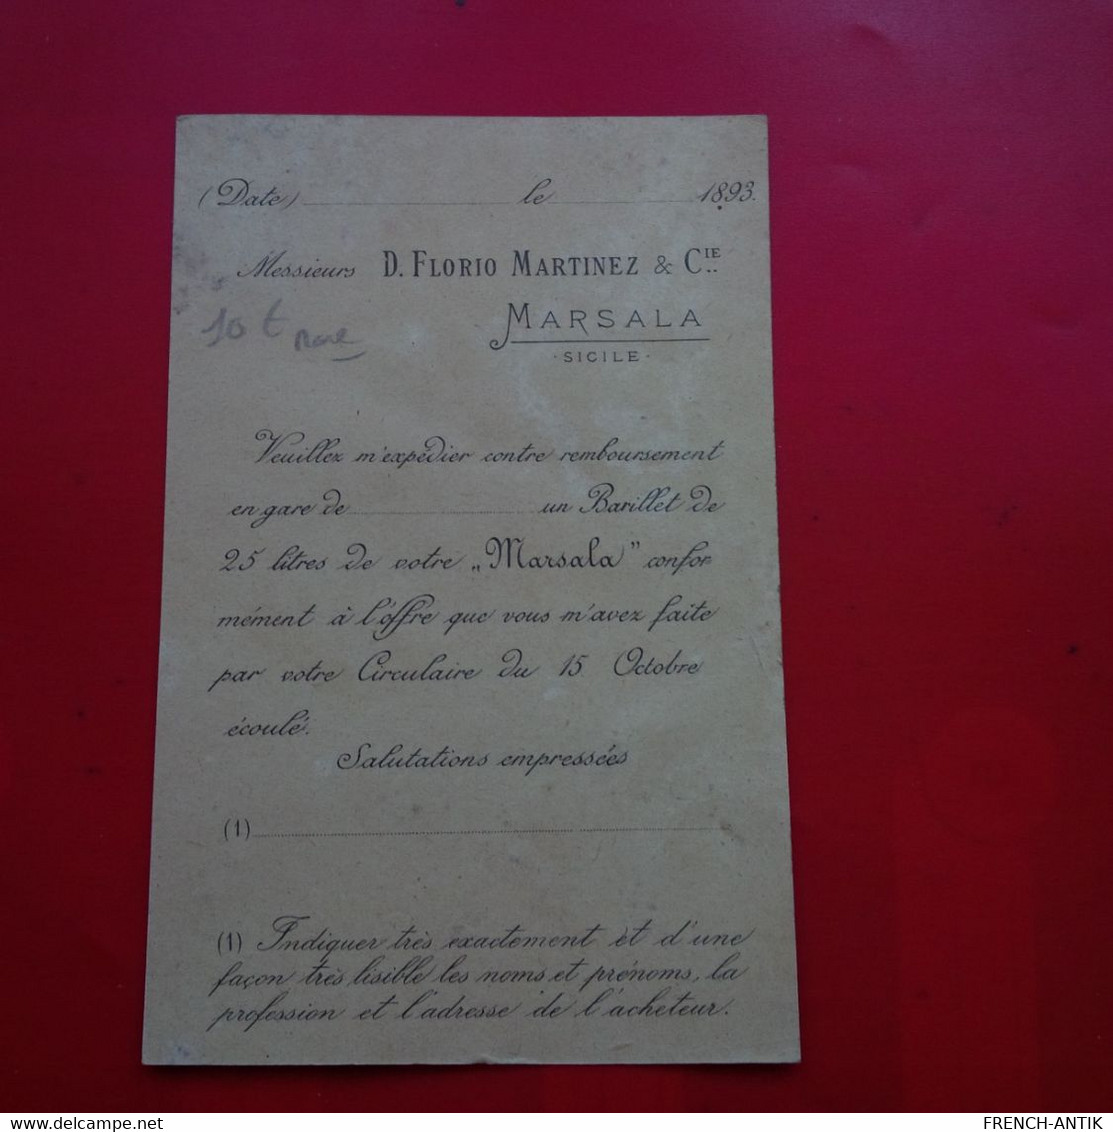 (Date) le 1893.
Messieurs D. FLORIO MARTINEZ & CIE
MARSALA
- SICILE -
10 €
Veuillez m'expédier contre remboursement
en gare de un Barillet de
25 litres de votre „Marsala" confor
mément à l'offre que vous m'avez faite
par votre Circulaire du 15 Octobre
écoulé.
Salutations empressées
(1)
(1) Indiquer très exactement et d'une
façon très lisible les noms et prénoms, la
profession et l'adresse de l'acheteur.
delcampe.net
FRENCH-ANTIK